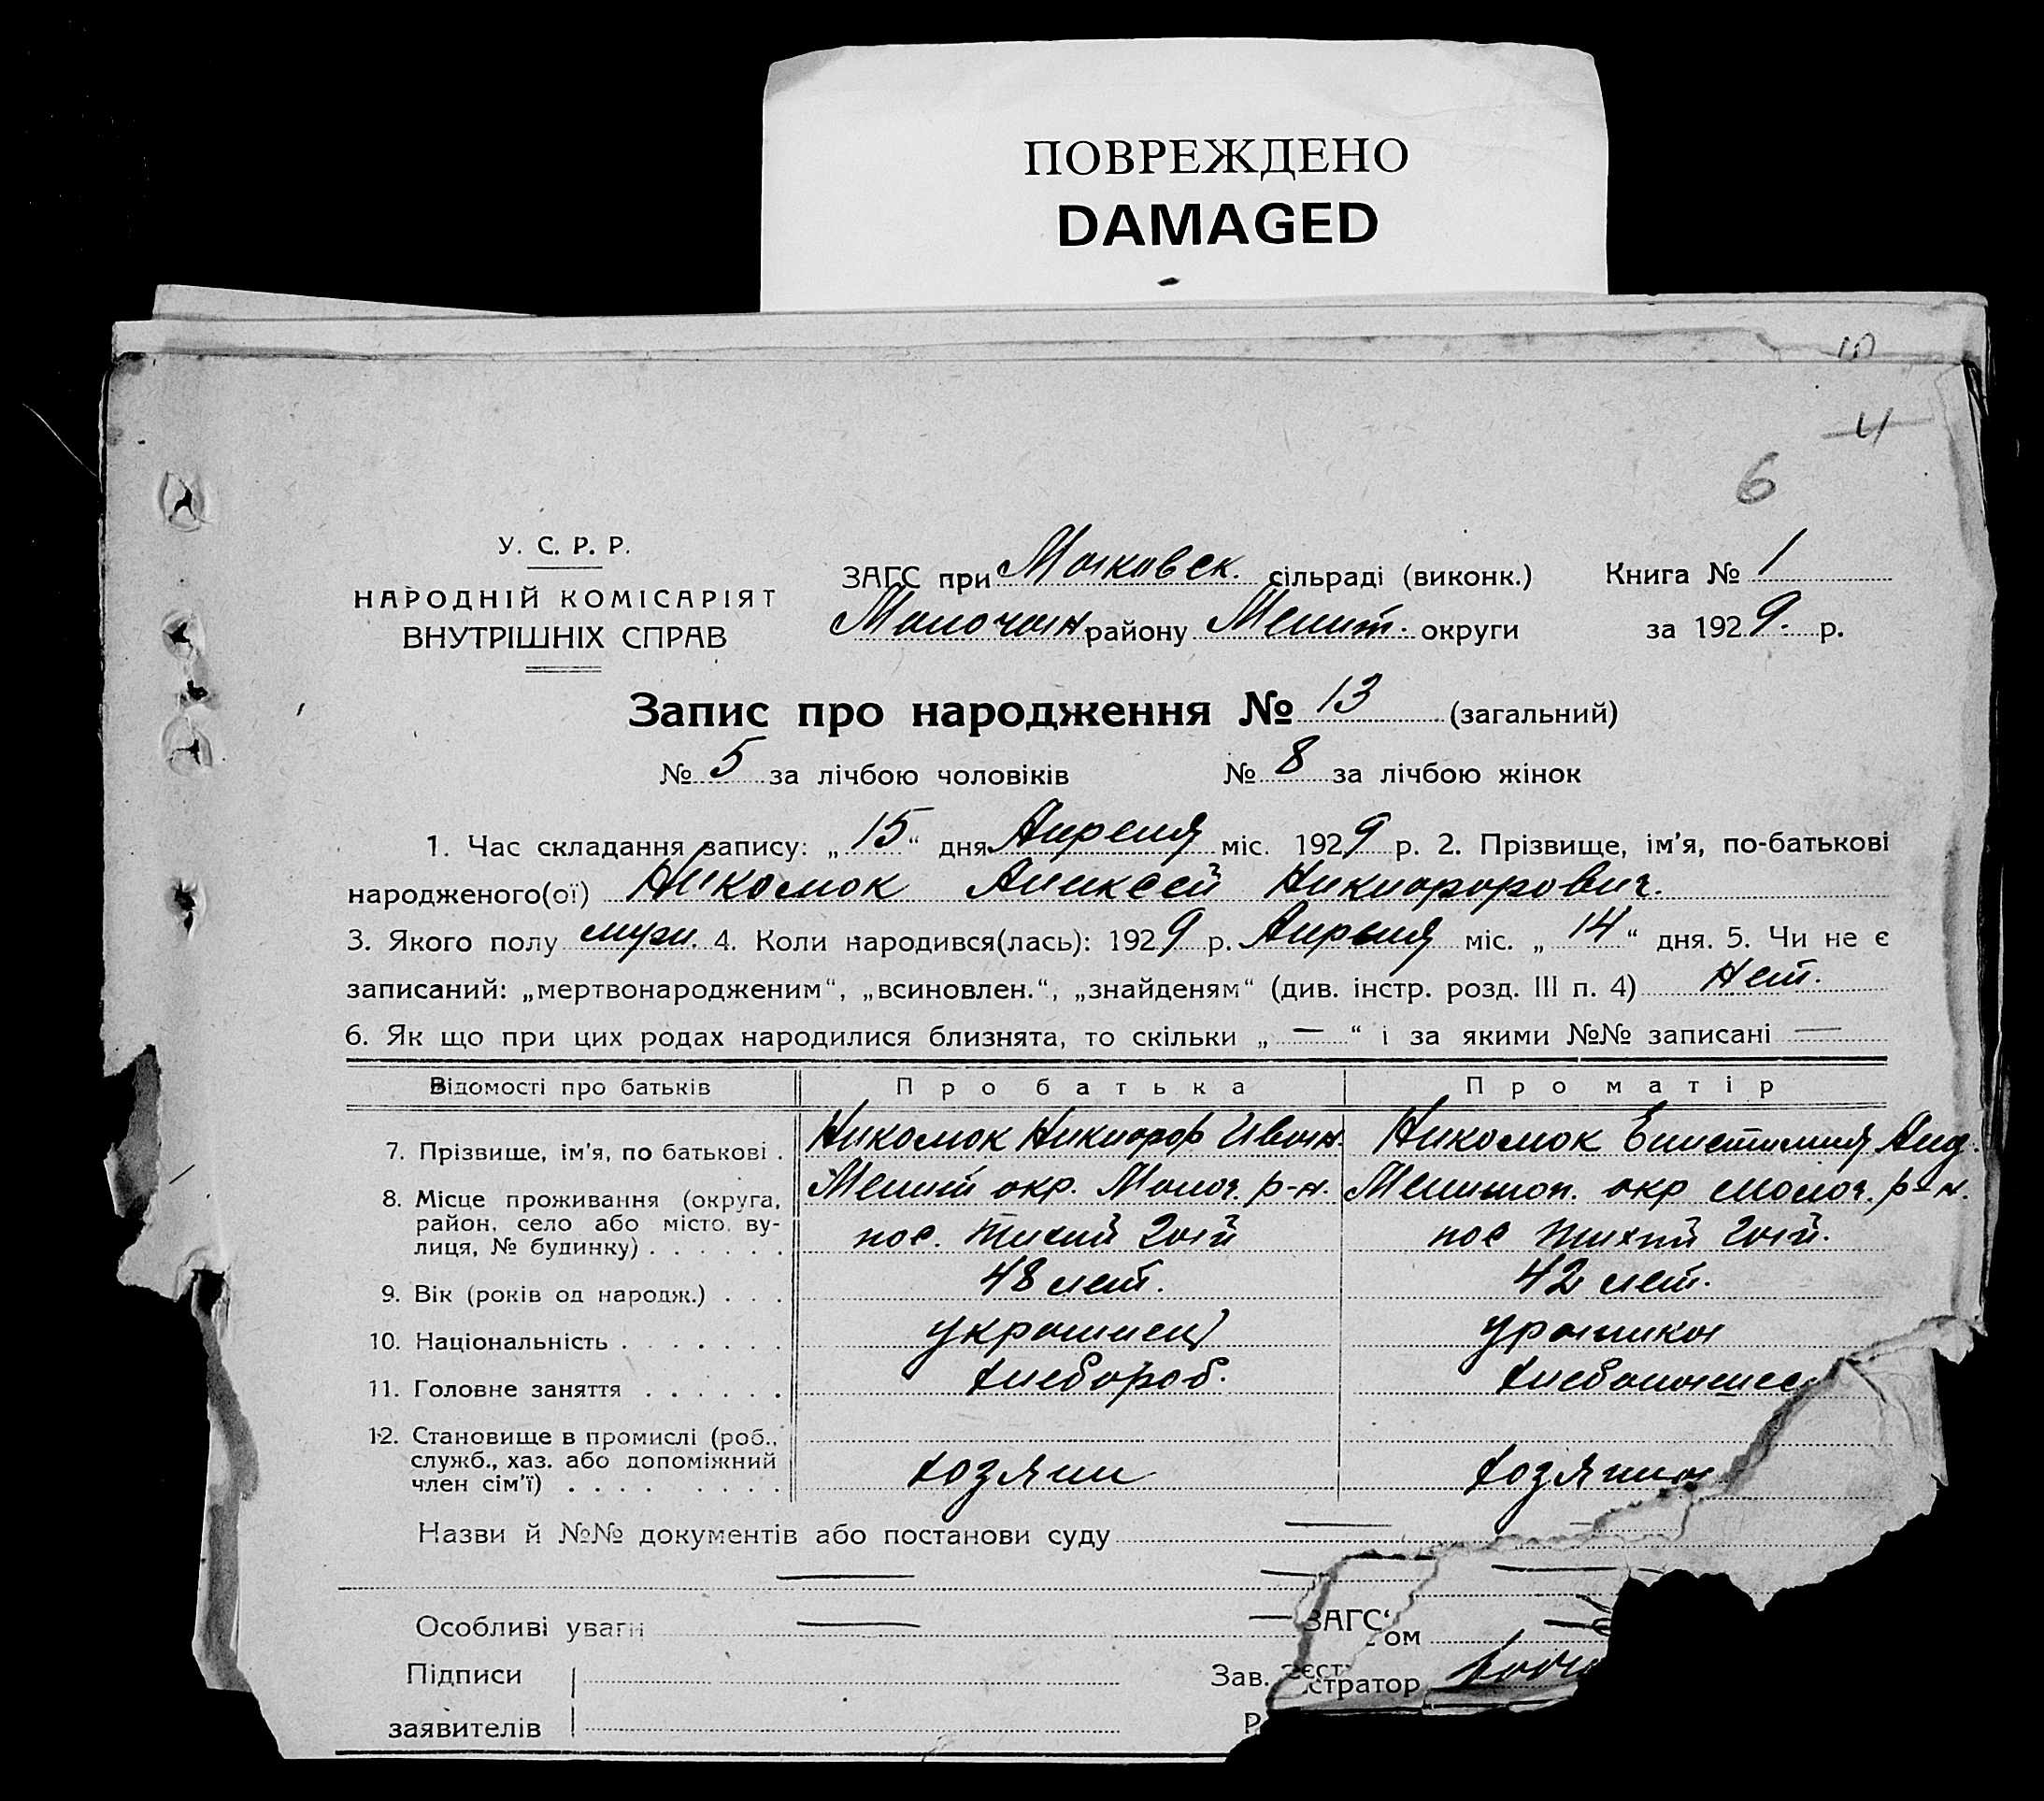 ПОВРЕЖДЕНО
DAMAGED
10
4
6
У. С. Р. Р.
НАРОДНІЙ КОМІСАРІЯТ
ВНУТРІШНІХ СПРАВ
ЗАГС при Московск. сільраді (виконк.) Книга № 1
Молочан району Мелит. округи за 1929. р.
Запис про народження № 13 (загальний)
№ 5 за лічбою чоловіків № 8 за лічбою жінок
1. Час складання запису: „15“ дня Апреля міс. 1929 р. 2. Прізвище, ім'я, по-батькові
народженого(ої) Николюк Алексей Никифорович.
3. Якого полу муж. 4. Коли народився(лась): 1929 р. Апреля міс. „14“ дня. 5. Чи не є
записаний: „мертвонародженим“, „всиновлен.“, „знайденям“ (див. інстр. розд. III п. 4) Нет.
6. Як що при цих родах народилися близнята, то скільки „—“ і за якими №№ записані —
Відомості про батьків Про батька Про матір
7. Прізвище, ім'я, по батькові . Николюк Никифор Иван. Николюк Епистимия Анд.
8. Місце проживання (округа, Мелит окр. Молоч. р-н. Мелитоп. окр Молоч. р-н.
район, село або місто, ву- пос. Тихий Гай пос Тихий Гай.
лиця, № будинку) . . . . . .
9. Вік (років од народж.) . . . 48 лет. 42 лет.
10. Національність . . . . . . . украинец
11. Головне заняття . . . . . . хлебороб.
12. Становище в промислі (роб.,
служб., хаз. або допоміжний хозяин хозяин
член сім'ї) . . . . . . . .
Назви й №№ документів або постанови суду —
—
Особливі уваги — — ЗАГС'ом —
Підписи Зав.
стратор
заявителів Р